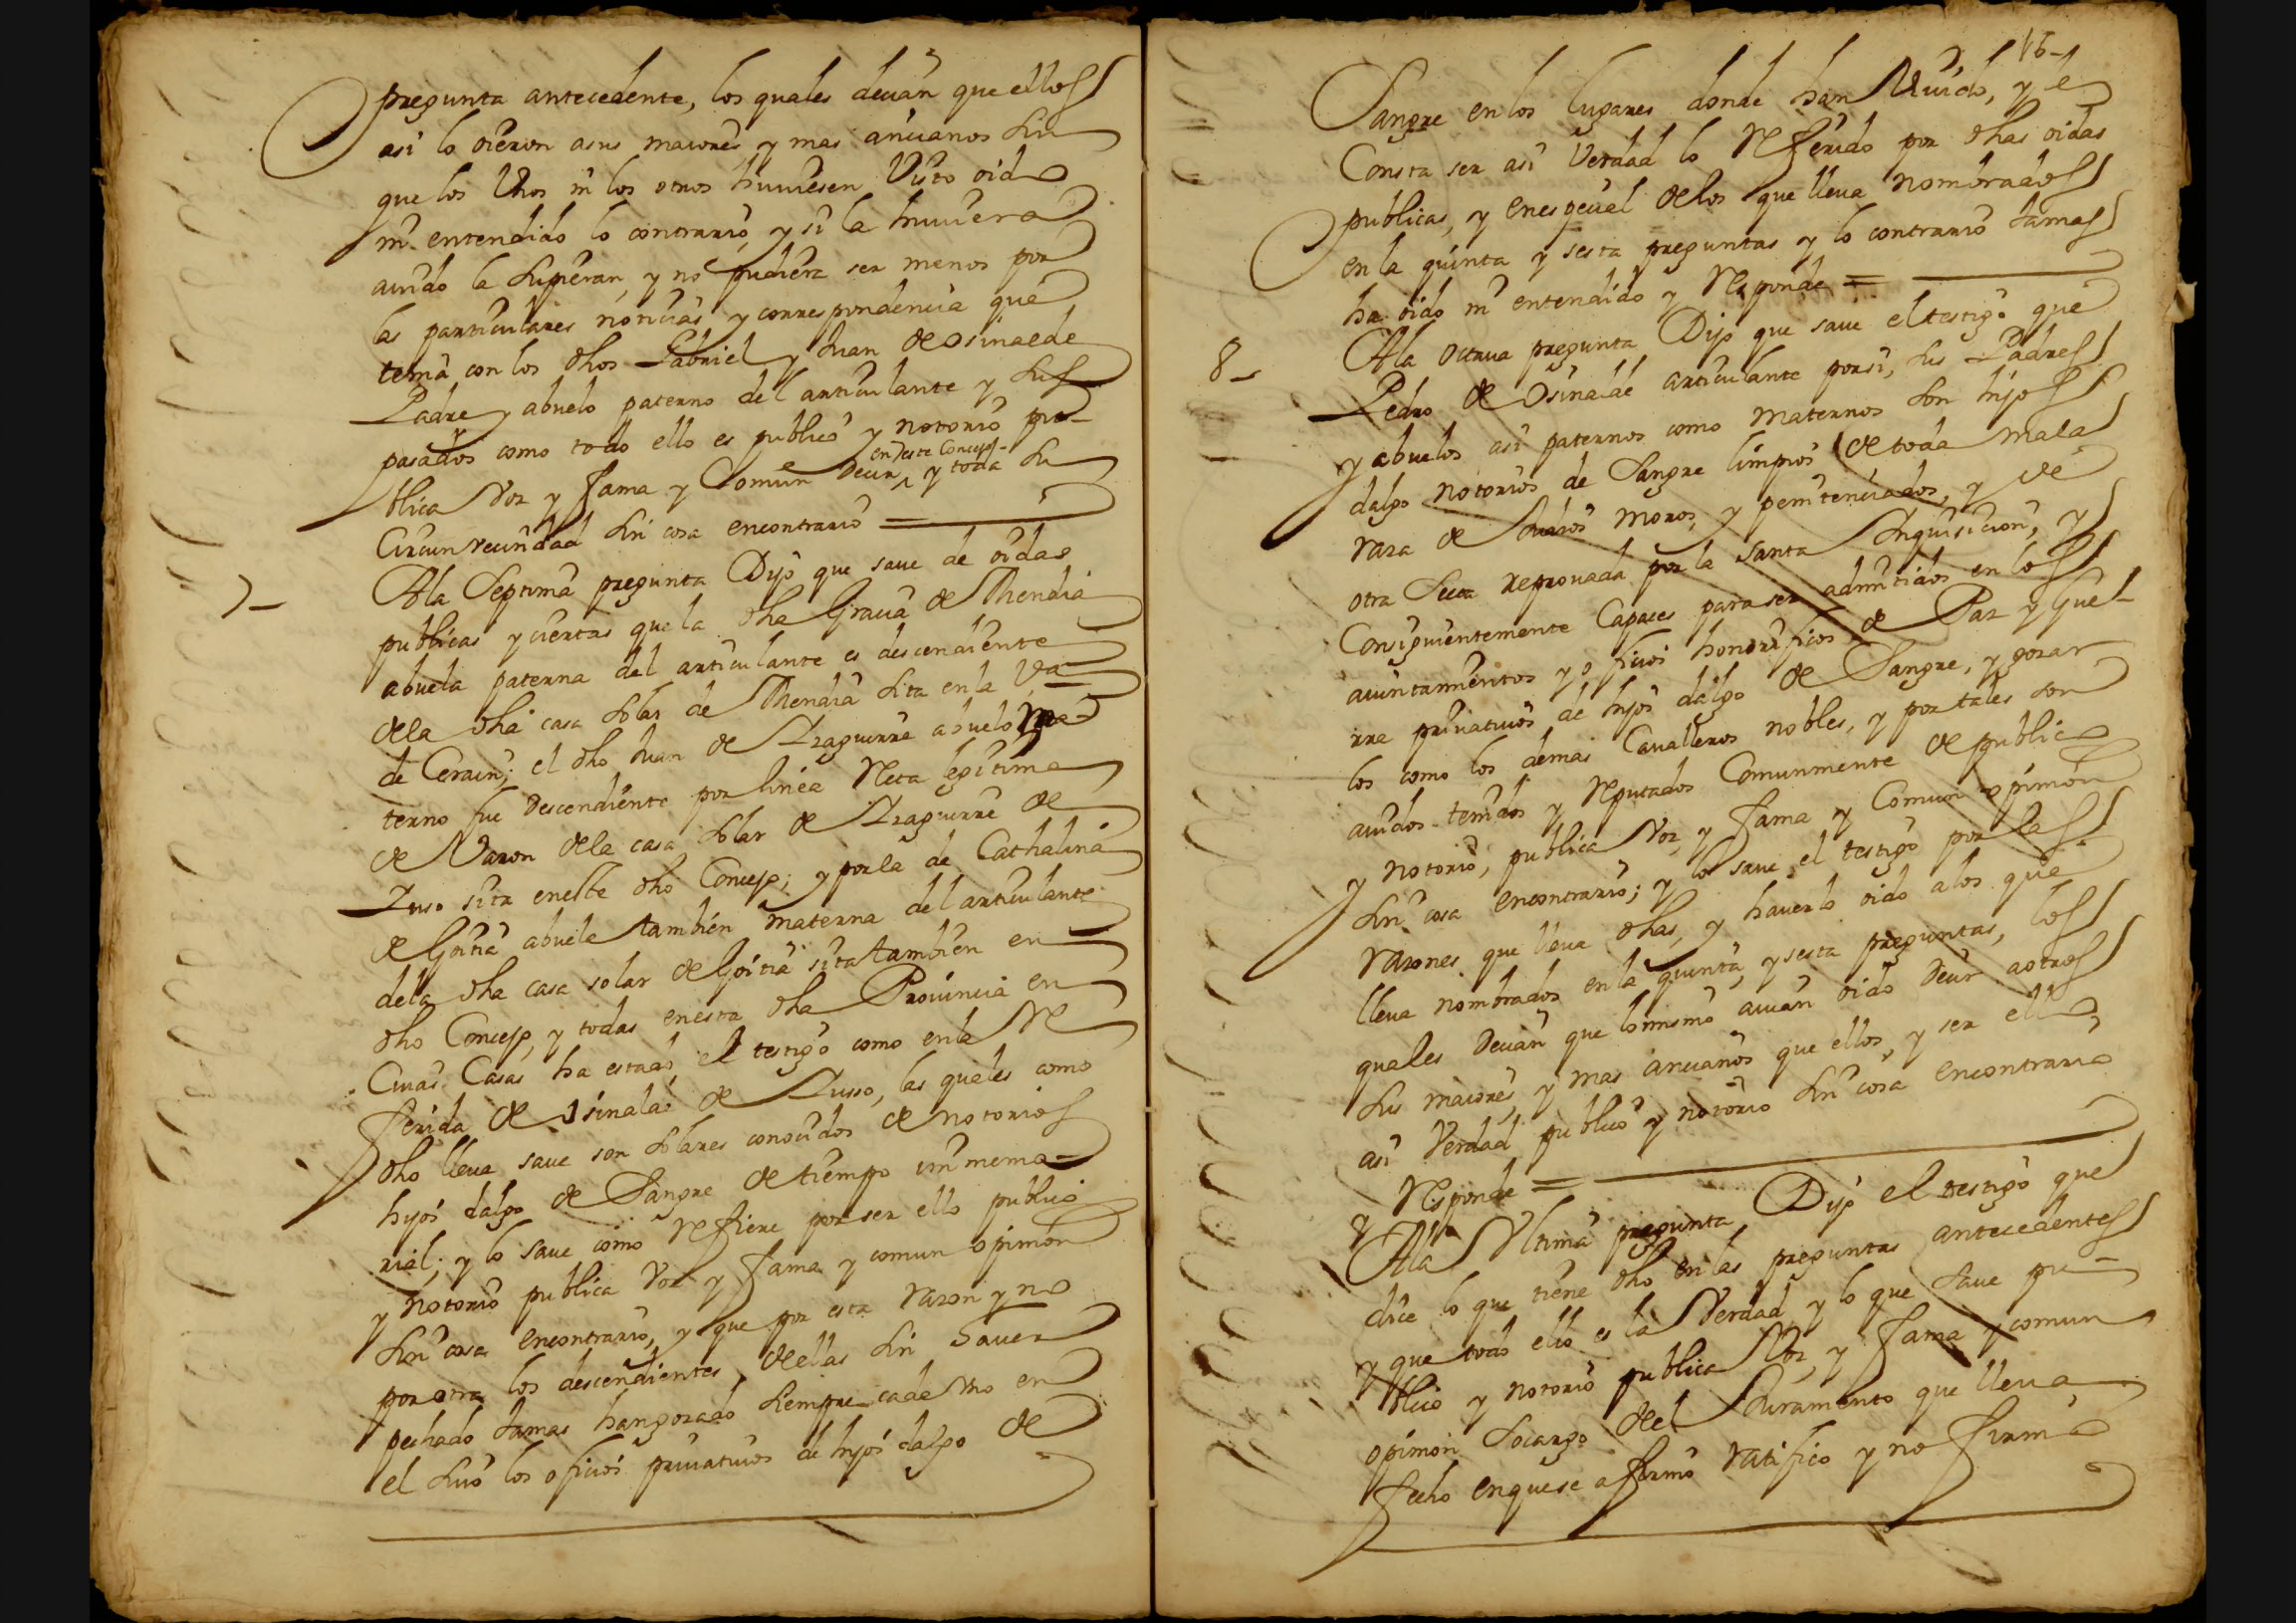 pregunta antecedente, los quales deuian que ellos
asi lo oieron a sus maiores, y mas ancianos sin
que los Unos ni los otros huuiesen Visto oido
ni entendido lo contrario, y si la huuiera
auido la supieran, y no pudiera ser menos por
las particulares noticias, y correspondencia que
tenia con los dhos Gabriel y Juan de Osinalde
Padre y abuelo paterno del articulante y sus
pasados como todo ello es publico y notorio pu-
blica Voz y fama y Comun decir en deste Concejo y toda su
Circunvecindad sin cosa encontrario =
7-
A la Septima pregunta Dijo que saue de oidas
publicas y ciertas que la dha Gracia de Mendia
abuela paterna del articulante es descendiente
de la dha casa solar de Mendia sita en la Va
de Cerain; el dho Juan de Izaguirre abuelo ma
terno fue Descendiente por linea Recta legitima
de Varon de la casa solar de Izaguirre de
Zuso sita en este dho Concejo; y por la de Cathalina
de Goitia abuela tambien materna del articulante
de la dha casa solar de Goitia sita tambien en
dho Concejo, y todas en esta dha Prouincia en
Cuias Casas ha estado el testigo como en la Re
ferida de Osinalde de Zusso, las quales como
dho lleua saue son solares conocidos de notorios
hijos dalgo de Sangre de tiempo inmemo-
rial; y lo saue como Refiere por ser ello publico
y notorio publica Voz y fama y comun opinion
sin cosa encontrario, y que por esta razon y no
por otra los descendientes de ellas sin sauer
pechado Jamas han gozado siempre cada Uno en
el suio los oficios priuatiuos de hijos dalgo de
16-
Sangre en los lugares donde han Viuido, y le
Consta ser asi Verdad lo Referido por dhas oidas
publicas, y en especial de los que lleua nombrados
en la quinta y sesta preguntas y lo contrario Jamas
ha oido ni entendido y Responde =
8-
A la octaua pregunta Dijo que saue el testigo que
Pedro de Osinalde articulante por si, sus Padres
y abuelos asi paternos como maternos son hijos
dalgo notorios de Sangre limpios de toda mala
raza de Judios moros, y penitenciados, y de
otra Secta reprouada por la santa Inquisicion, y
Consiguientemente Capaces para ser admitidos en los
aiuntamientos y oficios honorificos de Paz y Gue-
rra priuatiuos de hijos dalgo de Sangre, y gozar
los como los demas Caualleros nobles, y por tales son
auidos tenidos y Reputados Comunmente de publico
y notorio, publica Voz, y fama y Comun opinion
sin cosa encontrario; y lo saue el testigo por las
razones que lleua dhas, y hauerlo oido a los que
lleua nombrados en la quinta, y sesta preguntas, los
quales decian que lo mismo auian oido decir a otros
sus maiores, y mas ancianos que ellos, y ser ello
asi Verdad publico y notorio sin cosa encontrario
y Responde =
A la Vltima pregunta, Dijo el testigo que
dice lo que tiene dho en las preguntas antecedentes
y que todo ello es la Verdad, y lo que saue pu-
blico y notorio publica Voz, y fama y comun
opinion socargo del Juramento que lleua
fecho en que se afirmo ratifico y no firmo